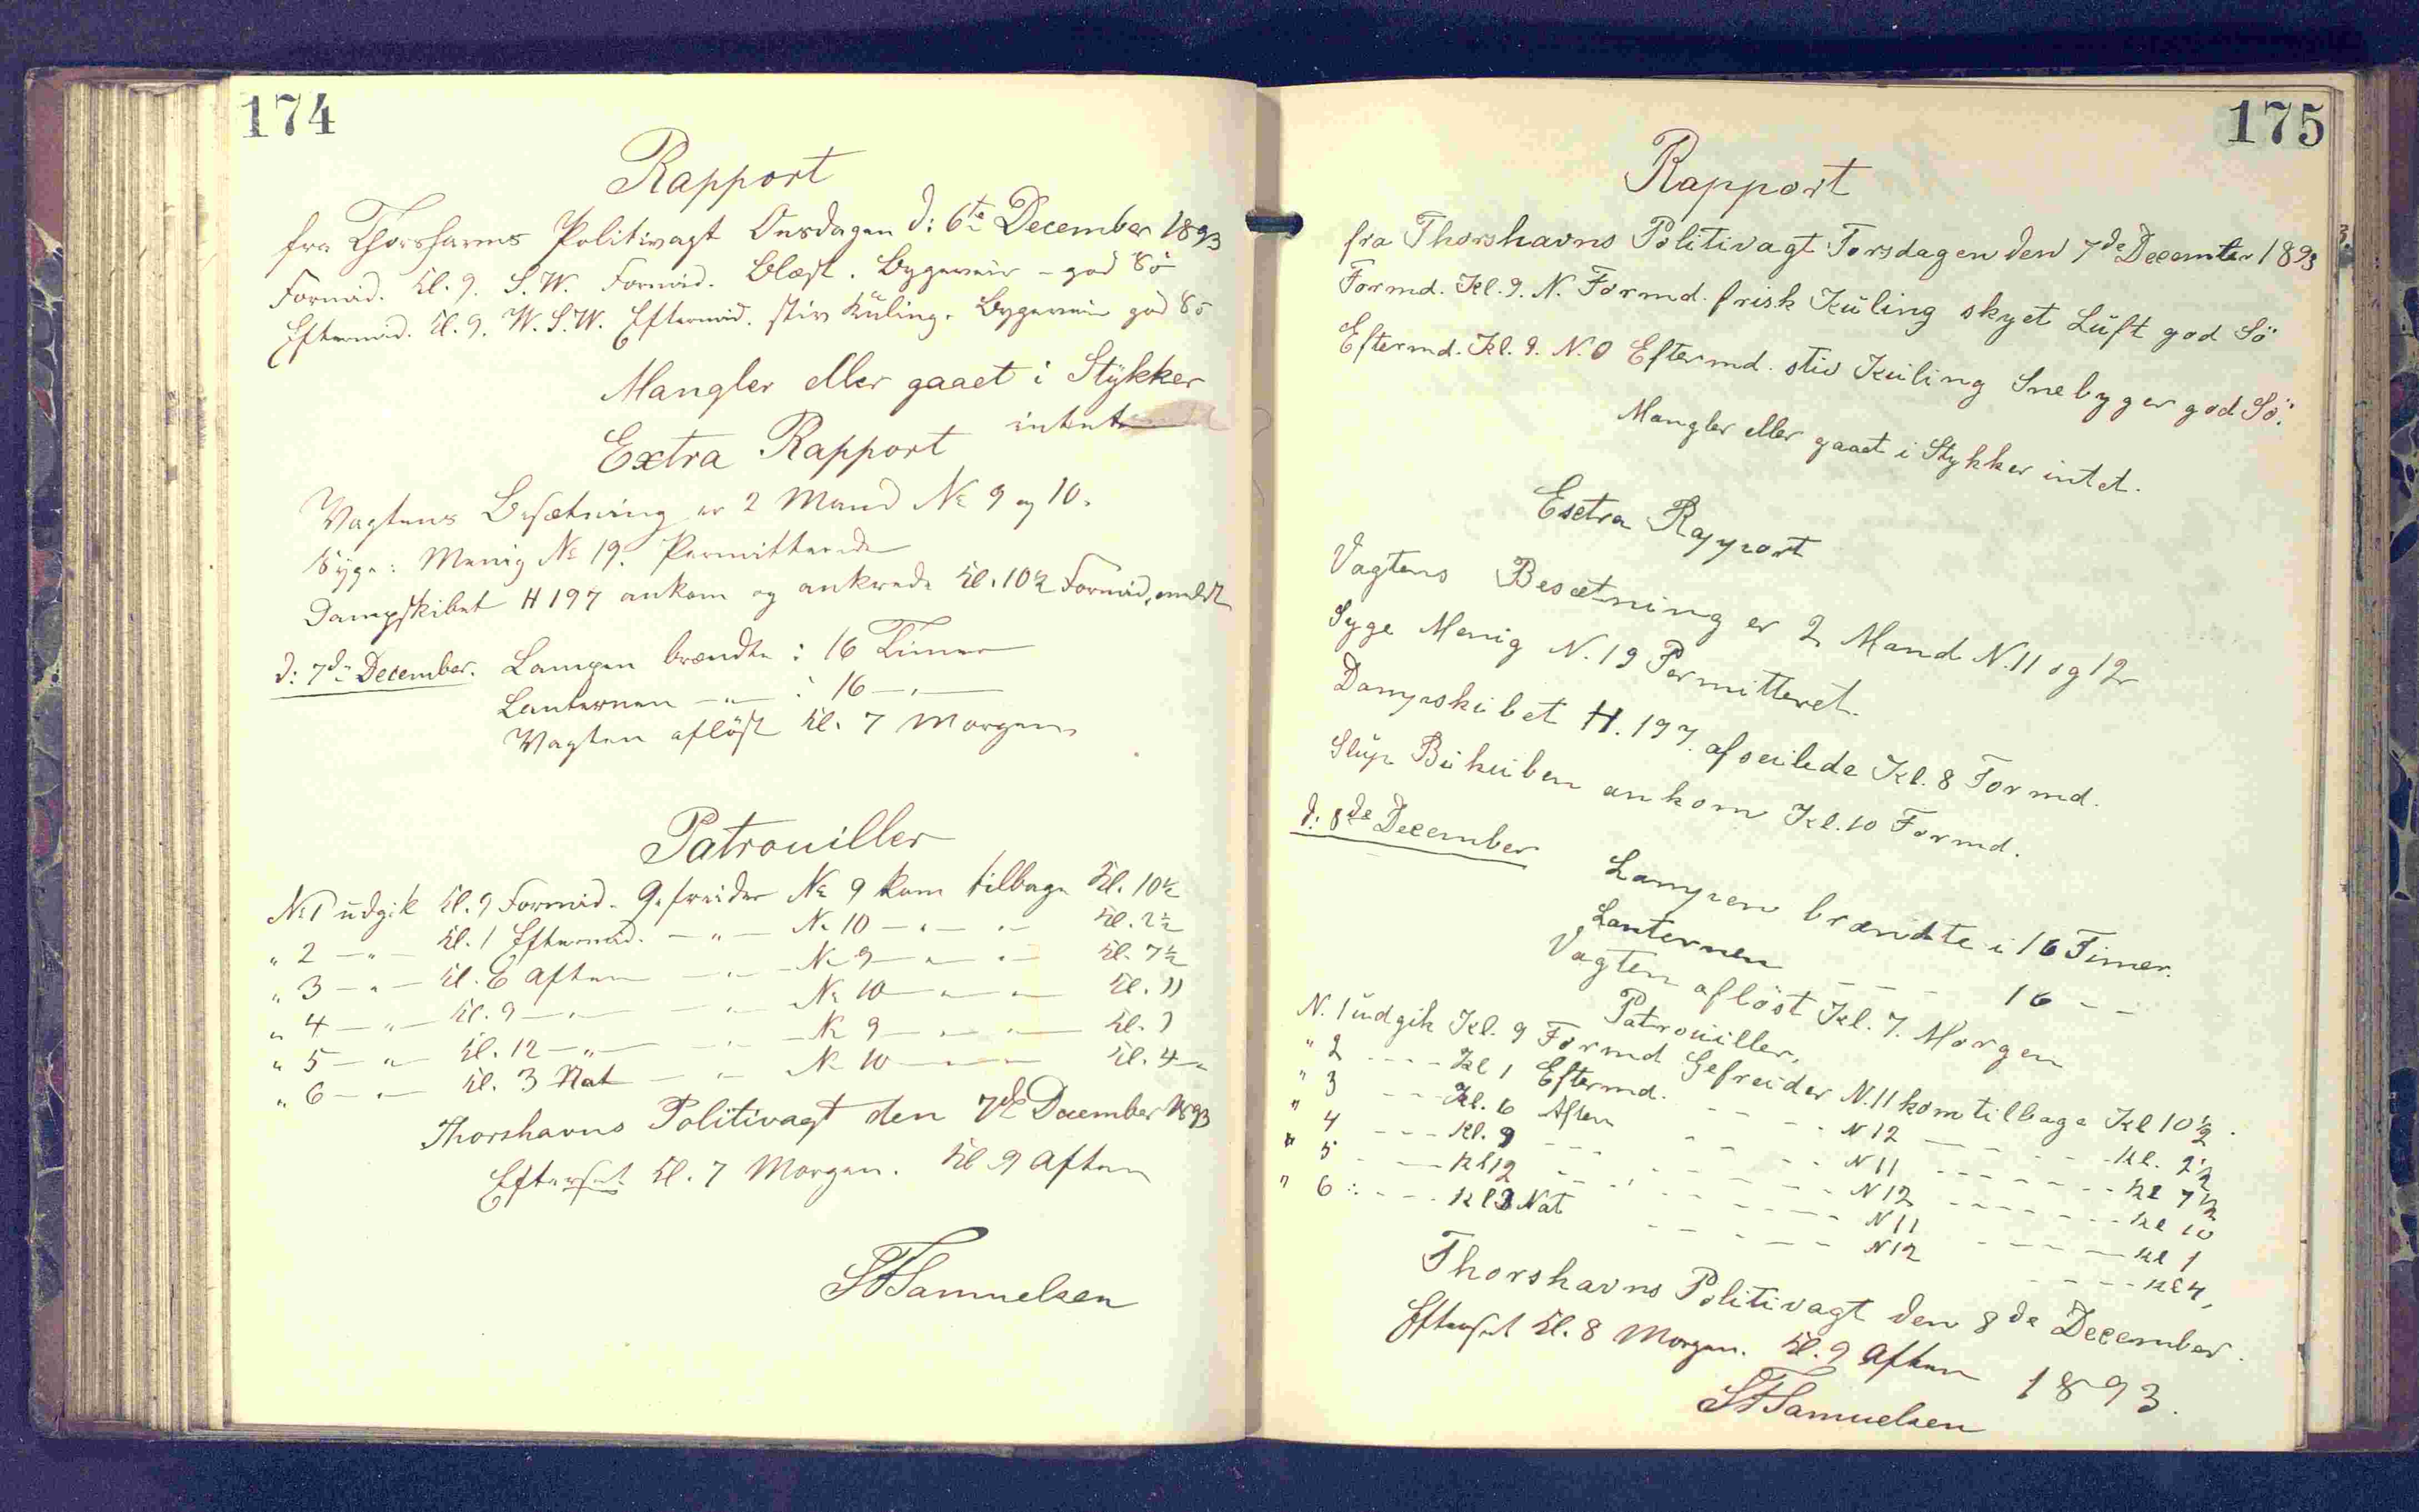 174
Rapport
fra Thorshavns Politivagt Onsdagen d: 6te December 1893
Formid. Kl. 9. S.W. Formid. Blæst. Bygeveir - god Sö
Eftermid. Kl. 9. W.S.W. Eftermid. stiv Küling. Bygeveir god Sö
Mangler eller gaaet i Stykker
intet
Extra Rapport
Vagtens Besætning er 2 Mand No 9 og 10.
Syge: Menig No 19. Permitterede
Dampskibet H 197 ankom og ankrede Kl. 10½ Formid,
d: 7de December. Lampen brændte i 16 Timer
Lanternen -"- i 16 -"-
Vagten aflöst Kl. 7 Morgen
Patrouiller
No 1 udgik Kl. 9 Formid. Gefreider No 9 kom tilbage Kl. 10½
" 2 -"- Kl. 1 Eftermid. -"- No 10 -"- "- Kl. 2½
" 3 -"- Kl. 6 Aften -"- No 9 -"- "- Kl. 7½
" 4 -"- Kl. 9 -"- -"- No 10 -"- "- Kl. 11
" 5 -"- Kl. 12 -"- -"- No 9 -"- "- Kl. 1
" 6 -"- Kl. 3 Nat -"- No 10 -"- "- Kl. 4
Thorshavns Politivagt den 7de December 1893
Efterset Kl. 7 Morgen. Kl 9 Aften
Samuelsen
175
Rapport
fra Thorshavns Politivagt Torsdagen den 7de December 1893
Formd. Kl. 9. N. Formd. frisk Küling skyet Lüft god Sö
Eftermd. Kl. 9. N.O Eftermd. stiv Kuling Snebyger god Sö.
Mangler eller gaaet i Stykker intet.
Esctra Rapport
Vagtens Besætning er 2 Mand N. 11 og 12
Syge Menig N. 19 Permitteret.
Dampskibet H. 197. afseilede Kl. 8 Formd.
Slüp Bikuben ankom Kl. 10 Formd.
d: 8de December
Lampen brændte i 16 Timer.
Lanternen - - - 16 - -
Vagten aflöst Kl. 7. Morgen
Patrouiller,
N. 1 üdgik Kl. 9 Formd Gefreider N. 11 kom tilbage Kl 10½.
" 2 - - - - Kl 1 Eftermd. - - - N 12 - - - - Kl. 2½
" 3 - - - Kl. 6 Aften - - - N 11 - - - - Kl 7½
" 4 - - - Kl. 9 - - - N 12 - - - - Kl 10
" 5 - - - Kl 12 - - - N 11 - - - - Kl 1
" 6 - - - Kl 3 Nat - - - N 12 - - - - Kl 4,
Thorshavns Politivagt den 8de December.
1893.
Efterset Kl. 8 Morgen. Kl. 9 Aften
Samuelsen